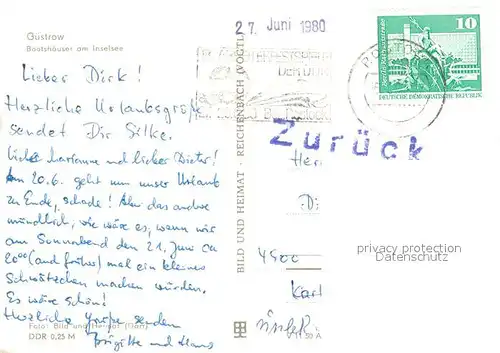 Güstrow
Bootshäuser am Inselsee
Lieber Dirk!
Herzliche Urlaubsgrüße
sendet Dir Silke.
Liebe Marianne und lieber Dieter!
Am 20.6. geht nun unser Urlaub
zu Ende, schade! Aber das andre
mündlich, wie wäre es, wenn wir
am Sonnabend den 21. Juni ca
20⁰⁰ (auch früher) mal ein kleines
Schwätzchen machen würden.
Es wäre schön!
Herzliche Grüße senden
Brigitte und Hans
Foto: Bild und Heimat
DDR 0,25 M
BILD UND HEIMAT · REICHENBACH (VOGTL
27. Juni 1980
DER DDR
10
DEUTSCHE DEMOKRATISCHE REPUBLIK
Zurück
Her
Di
4500
Karl
privacy protection
Datenschutz